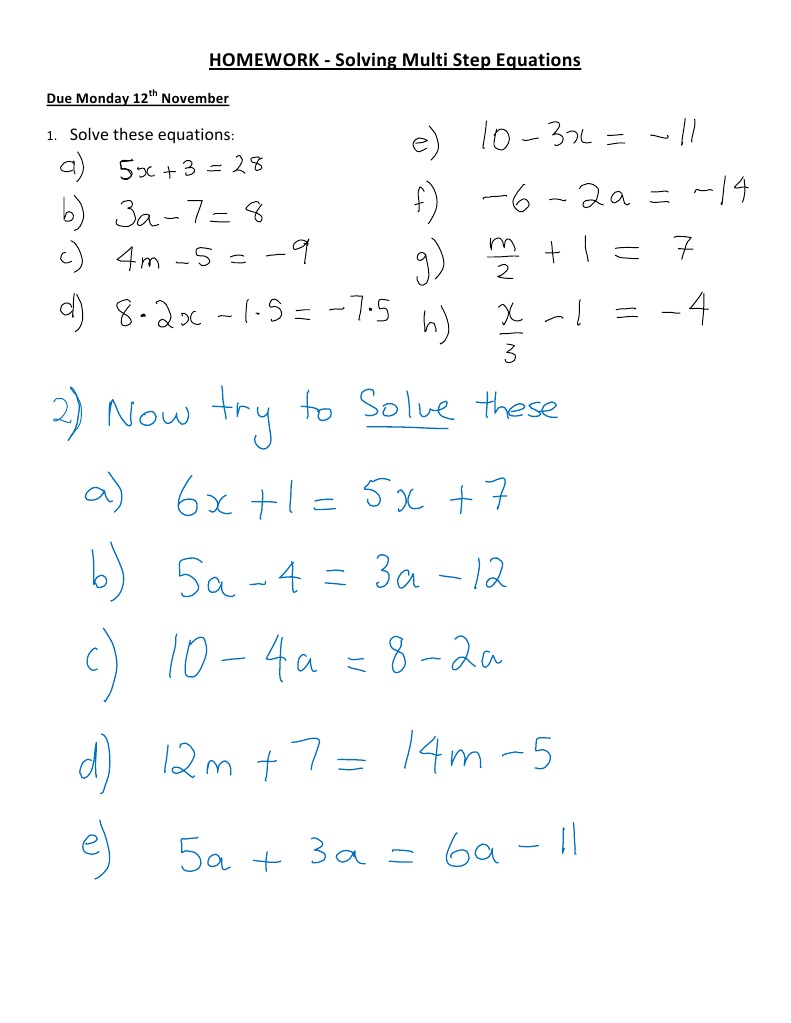 HOMEWORK - Solving Multi Step Equations
Due Monday 12th November
1. Solve these equations:
a) 5x + 3 = 28
b) 3a - 7 = 8
c) 4m - 5 = -9
d) 8.2x - 1.5 = -7.5
e) 10 - 3x = -11
f) -6 - 2a = -14
g) m/2 + 1 = 7
h) x/3 - 1 = -4
2) Now try to Solve these
a) 6x + 1 = 5x + 7
b) 5a - 4 = 3a - 12
c) 10 - 4a = 8 - 2a
d) 12m + 7 = 14m - 5
e) 5a + 3a = 6a - 11